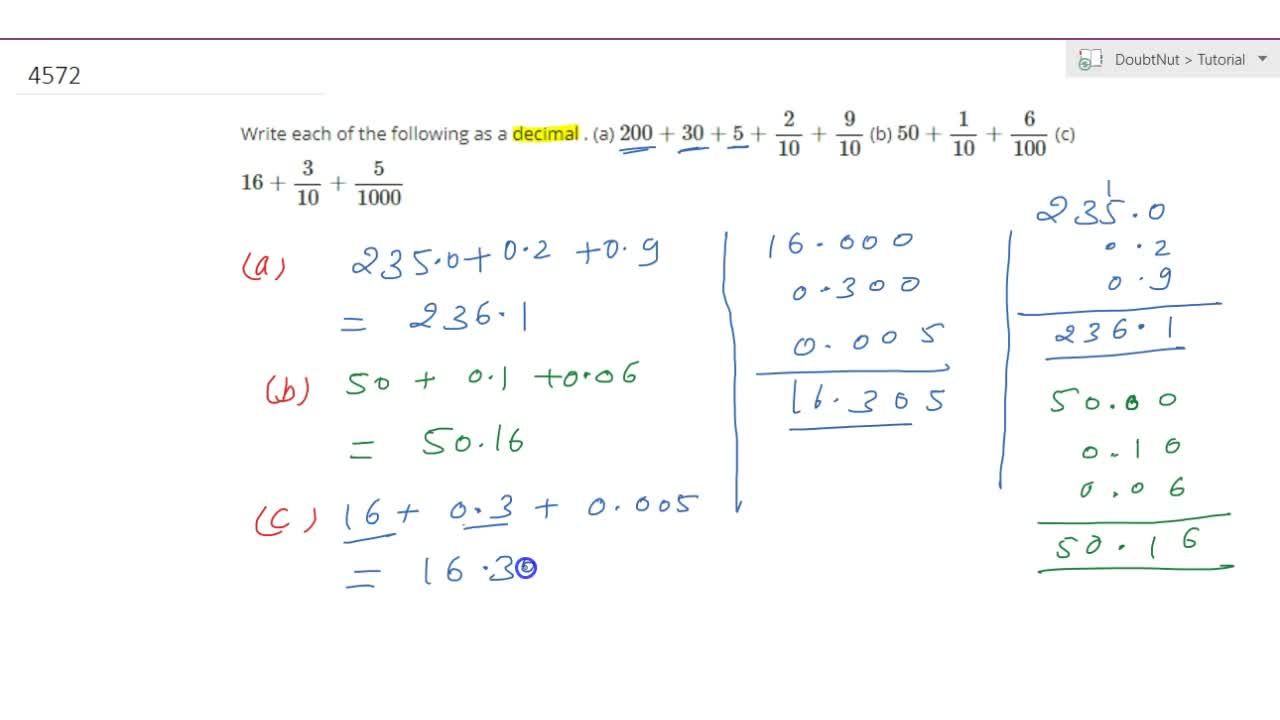 4572
DoubtNut > Tutorial
Write each of the following as a decimal . (a) 200 + 30 + 5 + 2/10 + 9/10 (b) 50 + 1/10 + 6/100 (c)
16 + 3/10 + 5/1000
(a) 235.0 + 0.2 + 0.9
= 236.1
(b) 50 + 0.1 + 0.06
= 50.16
(c) 16 + 0.3 + 0.005
= 16.30
16.000
0.300
0.005
16.305
1
235.0
0.2
0.9
236.1
50.00
0.10
0.06
50.16